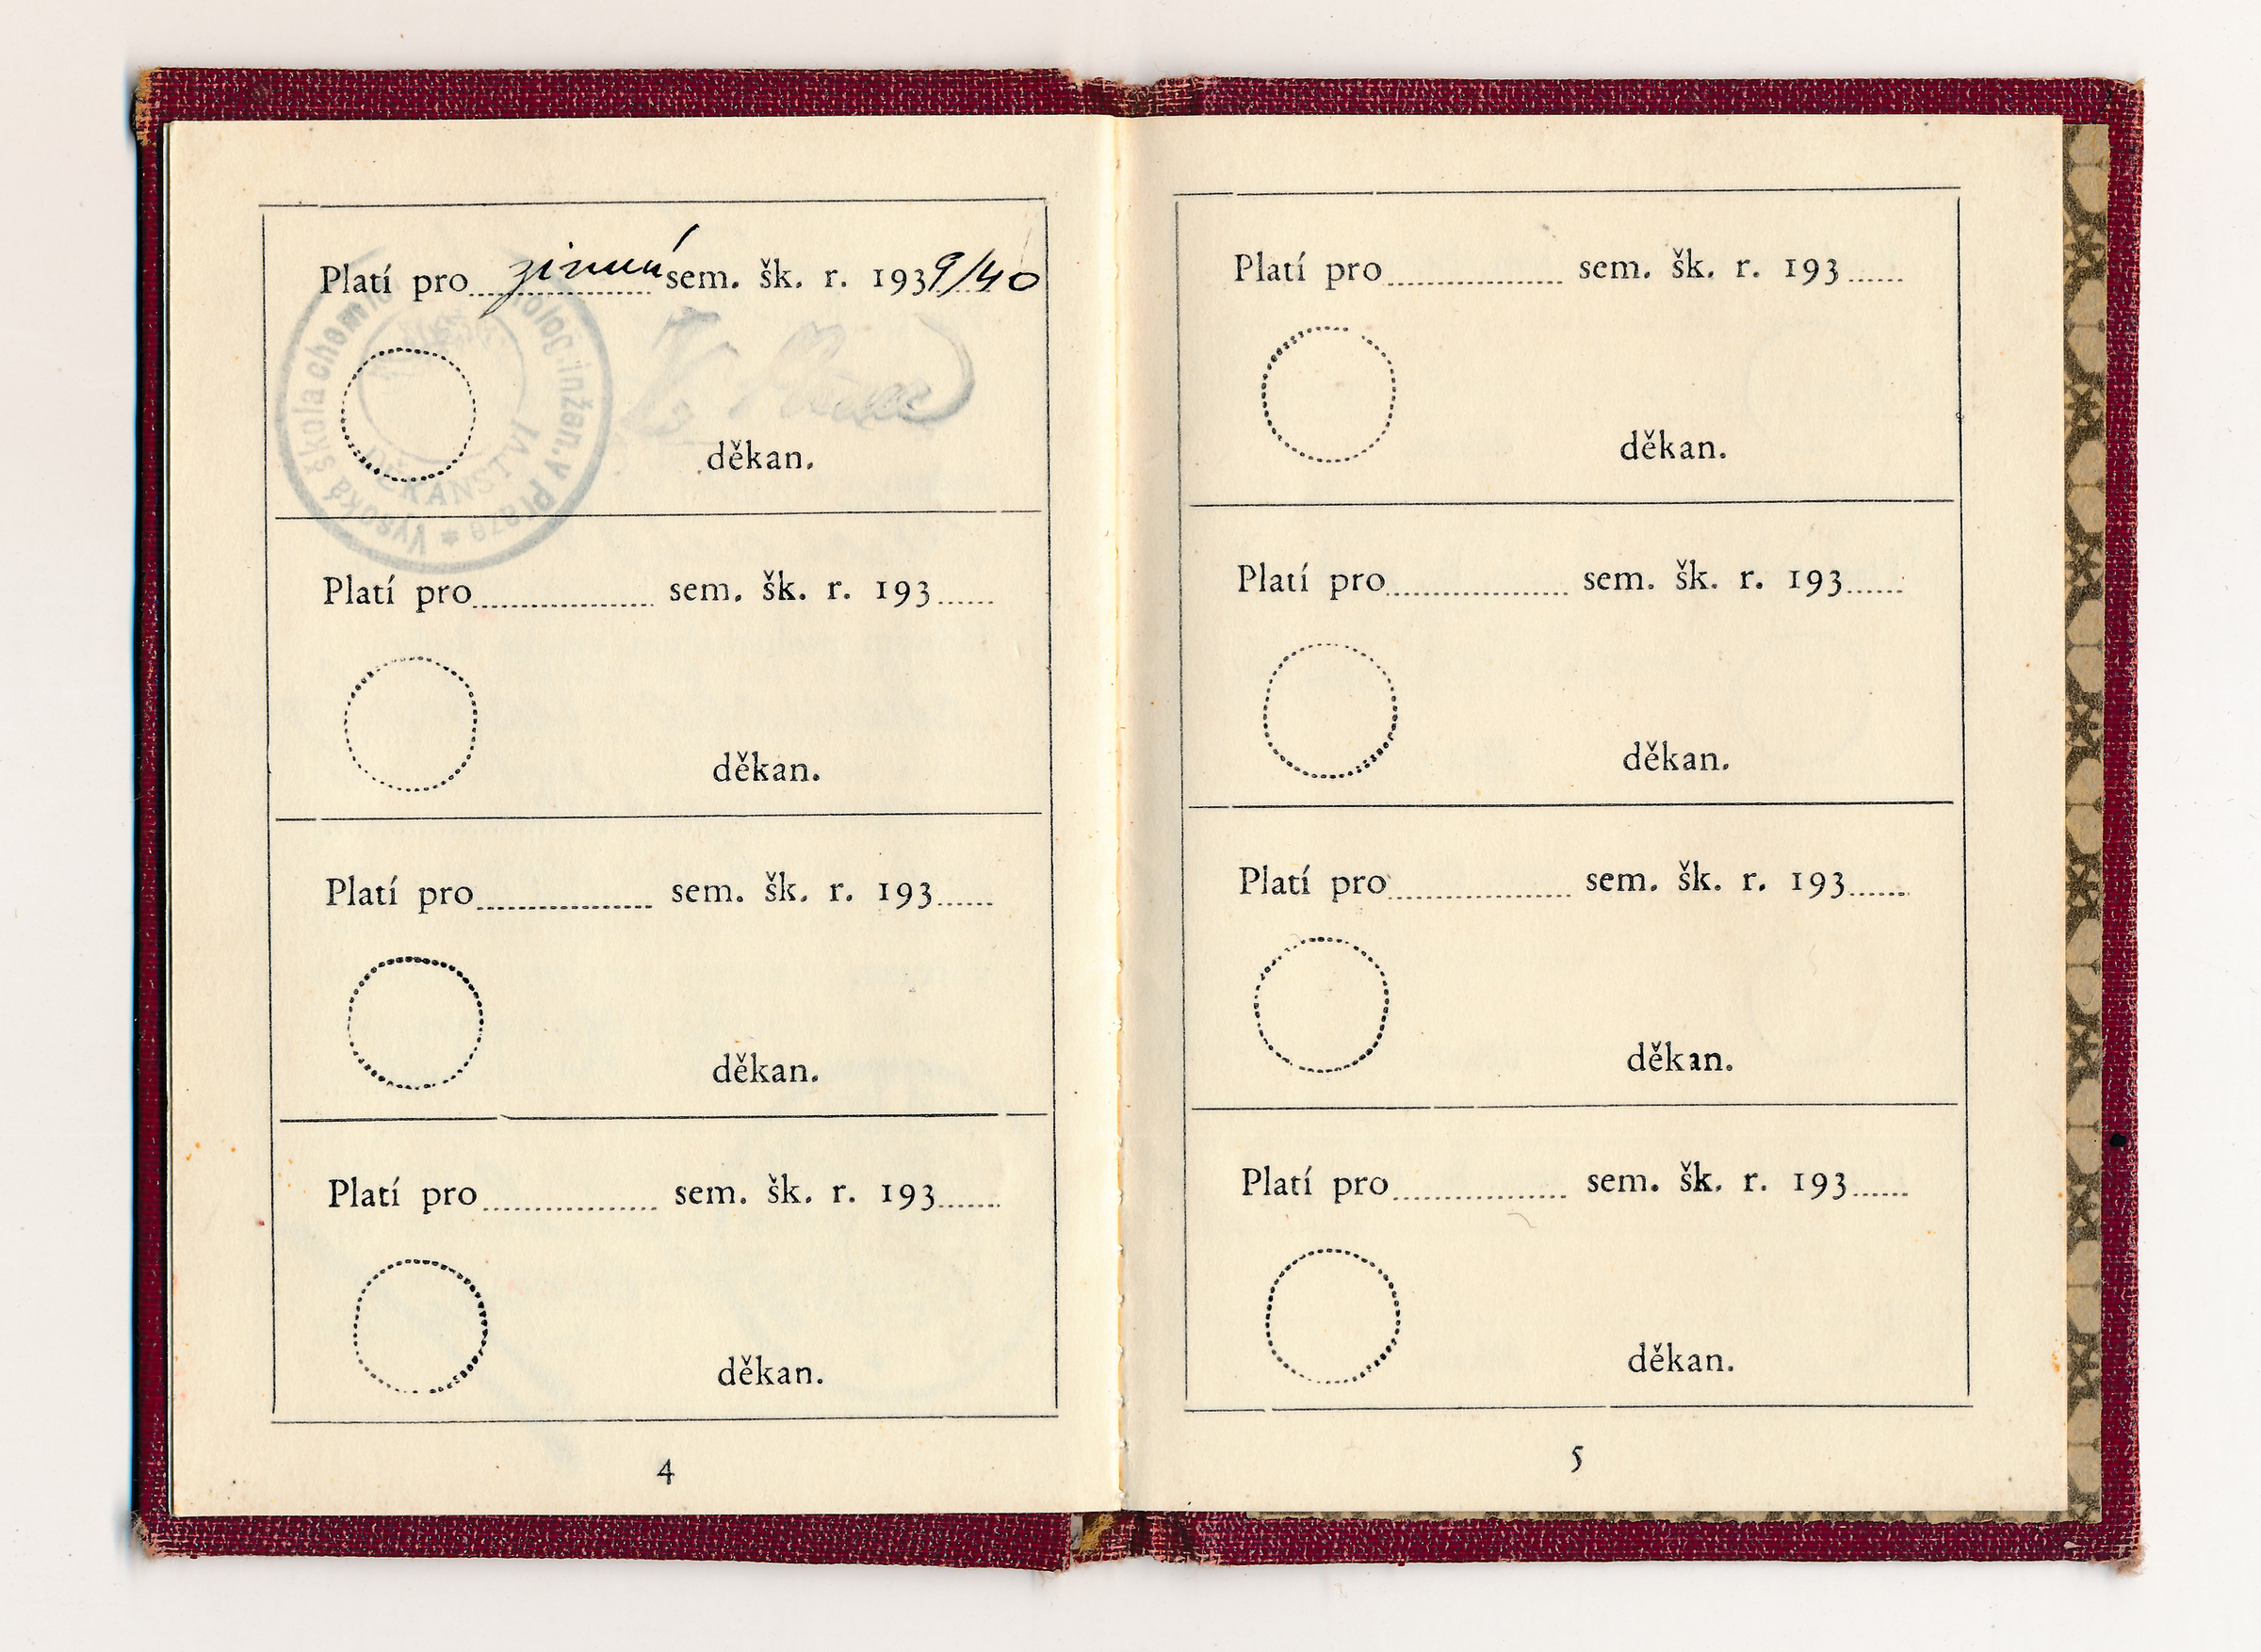 Platí pro zimní sem. šk. r. 1939/40
Vysoká škola chemicko technolog. inžen. v Praze *
DĚKANSTVÍ
děkan.
Platí pro sem. šk. r. 193
děkan.
Platí pro sem. šk. r. 193
děkan.
Platí pro sem. šk. r. 193
děkan.
4
Platí pro sem. šk. r. 193
děkan.
Platí pro sem. šk. r. 193
děkan.
Platí pro sem. šk. r. 193
děkan.
Platí pro sem. šk. r. 193
děkan.
5